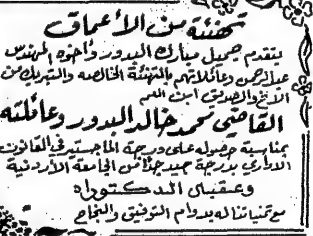 تهنئة من الأعماق
يتقدم جميل مبارك البدور وأخوه المهندس
عبدالرحمن وعائلاتهم بالتهنئة الخالصة والتبريك من
الأخ والصديق ابن العم
القاضي محمد خالد البدور وعائلته
بمناسبة حصوله على درجة الماجستير في القانون
الاداري بدرجة جيد جداً من الجامعة الأردنية
وعقبال الدكتوراه
مع تمنياتنا له بدوام التوفيق والنجاح